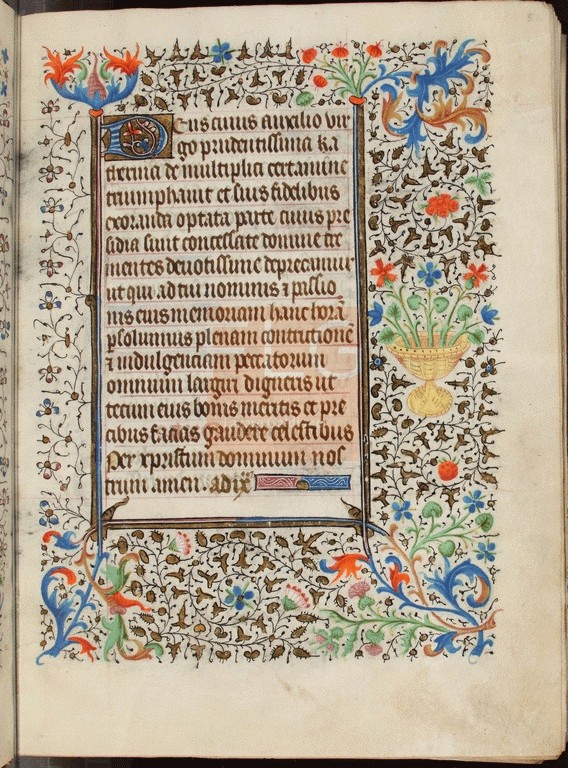 Deus cuius auxilio vir
go prudentissima ka
therina de multiplici certamine
triumphauit et suis fidelibus
exoranda optata parte cuius pre
sidia sunt concessate domine cle
mentes deuotissime deprecamur
ut qui ad tui nominis ⁊ passio
nis eius memoriam hanc horā
psoluimus plenam contrictionē
⁊ indulgenciam peccatorum
omnium largiri digneris ut
tecum eius bonis meritis et pre
cibus facias gaudere celestibus
Per xpristum dominum nos
trum amen. ad ixͣ